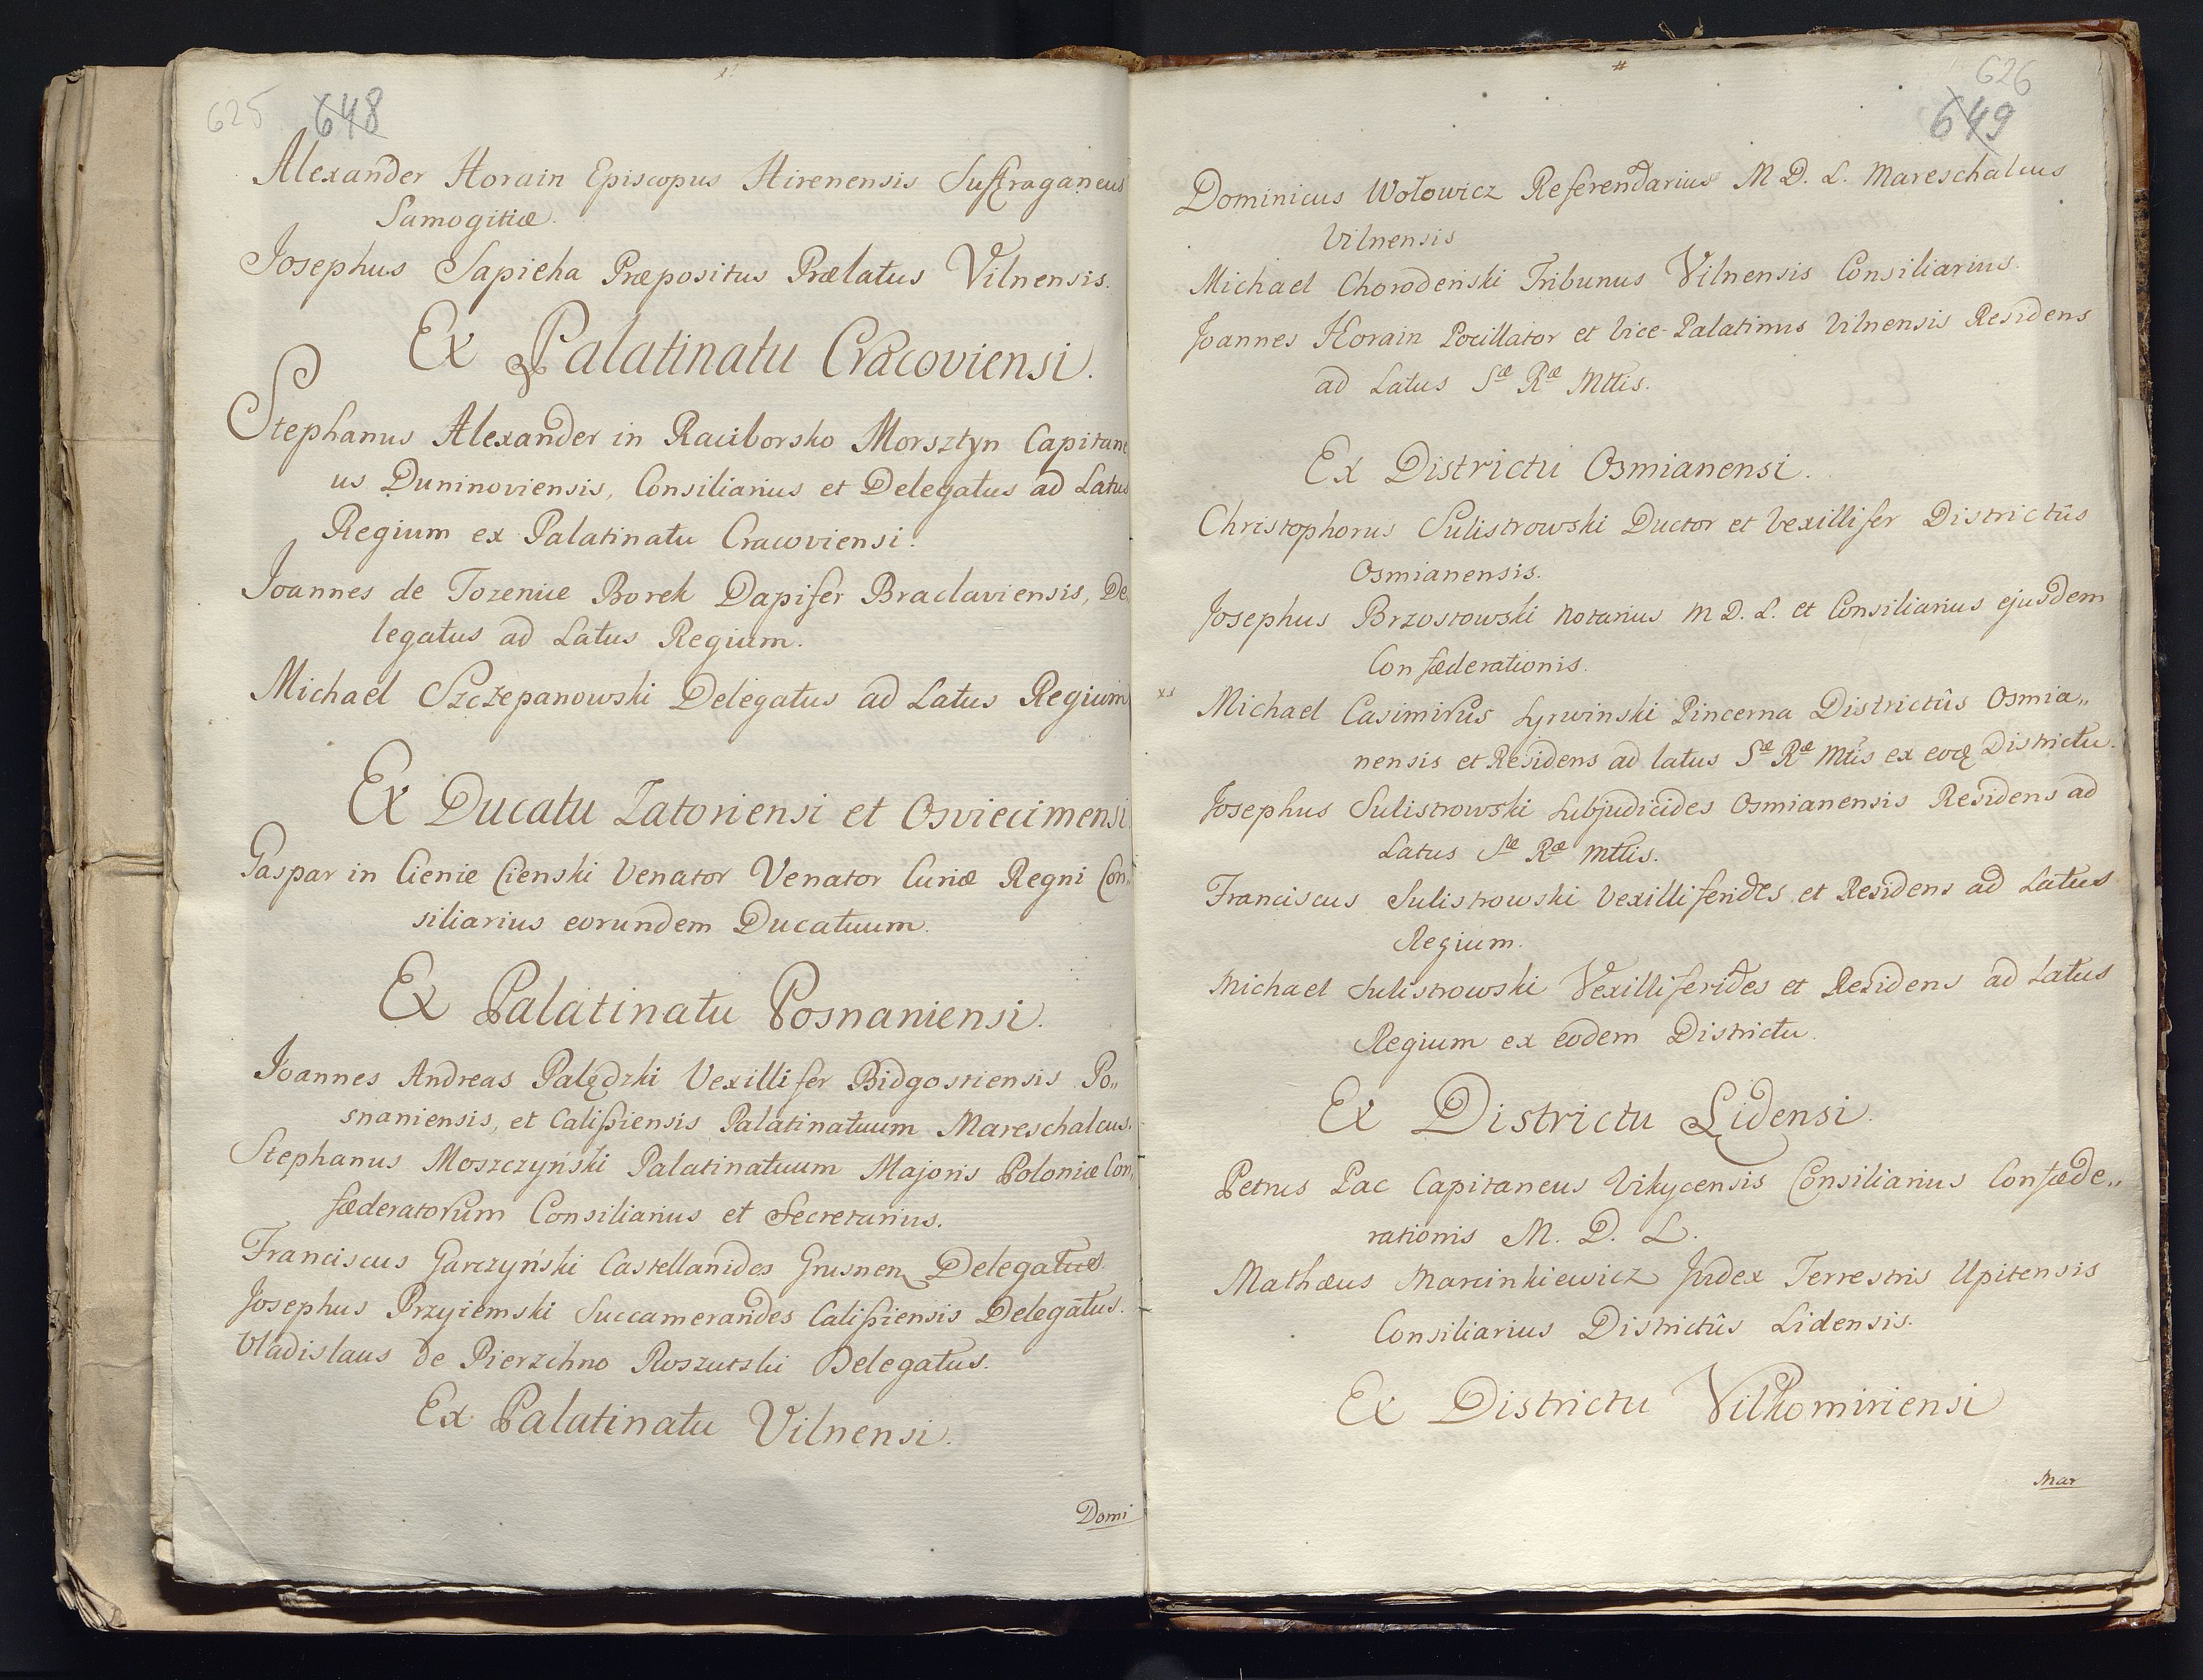 625 648
Alexander Horain Episcopus Hirenensis Suffraganeus
Samogitiæ.
Josephus Sapieha Præpositus Prælatus Vilnensis.
Ex Palatinatu Cracoviensi.
Stephanus Alexander in Raciborsko Morsztyn Capitane
us Duninoviensis, Consiliarius et Delegatus ad Latus
Regium ex Palatinatu Cracoviensi.
Joannes de Tozenice Borek Dapifer Braclaviensis, De
legatus ad Latus Regium.
Michael Szczepanowski Delegatus ad Latus Regium
Ex Ducatu Zatoriensi et Osviecimensi
Gaspar in Cienie Cienski Venator Venator Curiæ Regni Con„
siliarius eorundem Ducatuum.
Ex Palatinatu Posnaniensi.
Joannes Andreas Palędzki Vexillifer Bidgostiensis Po„
snaniensis, et Calißiensis Palatinatuum Mareschalcus.
Stephanus Moszczyński Palatinatuum Majoris Poloniæ Con„
fæderatorum Consiliarius et Secretarius.
Franciscus Garczyński Castellanides Delegatus.
Josephus Przyiemski Succamerarides Calißiensis Delegatus.
Vladislaus de Pierzchno Roszutski Delegatus.
Ex Palatinatu Vilnensi.
Domi
626
649
Dominicus Wołowicz Referendarius M D. L. Mareschalcus
Vilnensis
Michael Chorodeński Tribunus Vilnensis Consiliarius.
Joannes Horain Pocillator et Vice-Palatinus Vilnensis Residens
ad Latus Sæ Ræ Mttis.
Ex Districtu Osmianensi.
Christophorus Sulistrowski Ductor et Vexillifer Districtûs
Osmianensis.
Josephus Brzostowski Notarius M D. L. et Consiliarius ejusdem
Confæderationis.
xx Michael Casimirus Lyrwinski Pincerna Districtûs Osmia„
nensis et Residens ad latus Sæ Ræ Mtis ex eodę Districtu.
Josephus Sulistrowski Subjudicides Osmianensis Residens ad
Latus Sæ Ræ Mttis.
Franciscus Sulistrowski Vexilliferides et Residens ad Latus
Regium.
Michael Sulistrowski Vexilliferides et Residens ad Latus
Regium ex eodem Districtu.
Ex Districtu Lidensi.
Petrus Pac Capitaneus Vikycensis Consiliarius Confæde„
rationis M. D. L.
Mathæus Marcinkiewicz Judex Terrestris Upitensis
Consiliarius Districtûs Lidensis.
Ex Districtu Vilkomiriensi
Mar